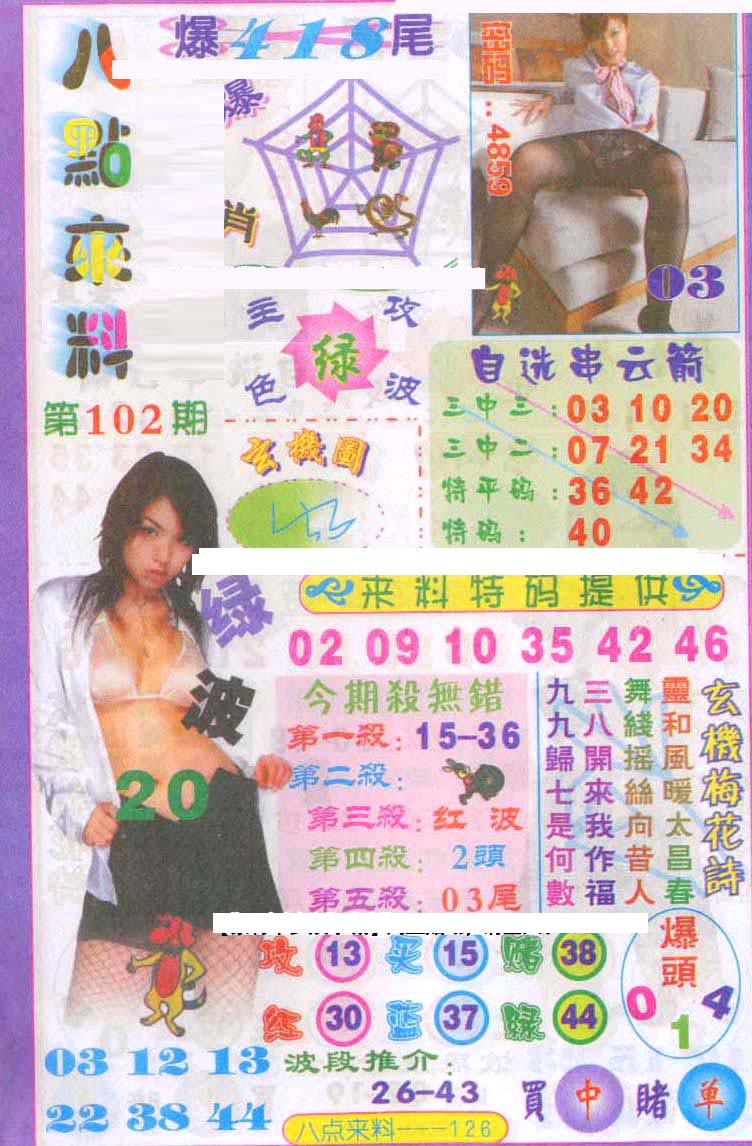 八點來料
爆418尾
爆
肖
密码...4859
03
主攻
绿
色波
第102期
玄機圖
自选串云箭
三中三：03 10 20
三中二：07 21 34
特平码：36 42
特码：40
绿波
20
来料特码提供
02 09 10 35 42 46
今期殺無錯
第一殺：15-36
第二殺：
第三殺：红波
第四殺：2頭
第五殺：03尾
玄機梅花詩
靈和風暖太昌春
舞綫摇絲向昔人
三八開來我作福
九九歸七是何數
攻 13 买 15 赌 38
红 30 蓝 37 绿 44
爆頭
0 1 4
03 12 13
22 38 44
波段推介：
26-43
買中賭单
八点来料---126